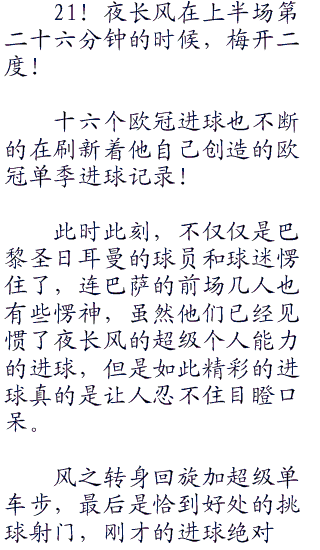 21！夜长风在上半场第
二十六分钟的时候，梅开二
度！
十六个欧冠进球也不断
的在刷新着他自己创造的欧
冠单季进球记录！
此时此刻，不仅仅是巴
黎圣日耳曼的球员和球迷愣
住了，连巴萨的前场几人也
有些愣神，虽然他们已经见
惯了夜长风的超级个人能力
的进球，但是如此精彩的进
球真的是让人忍不住目瞪口
呆。
风之转身回旋加超级单
车步，最后是恰到好处的挑
球射门，刚才的进球绝对